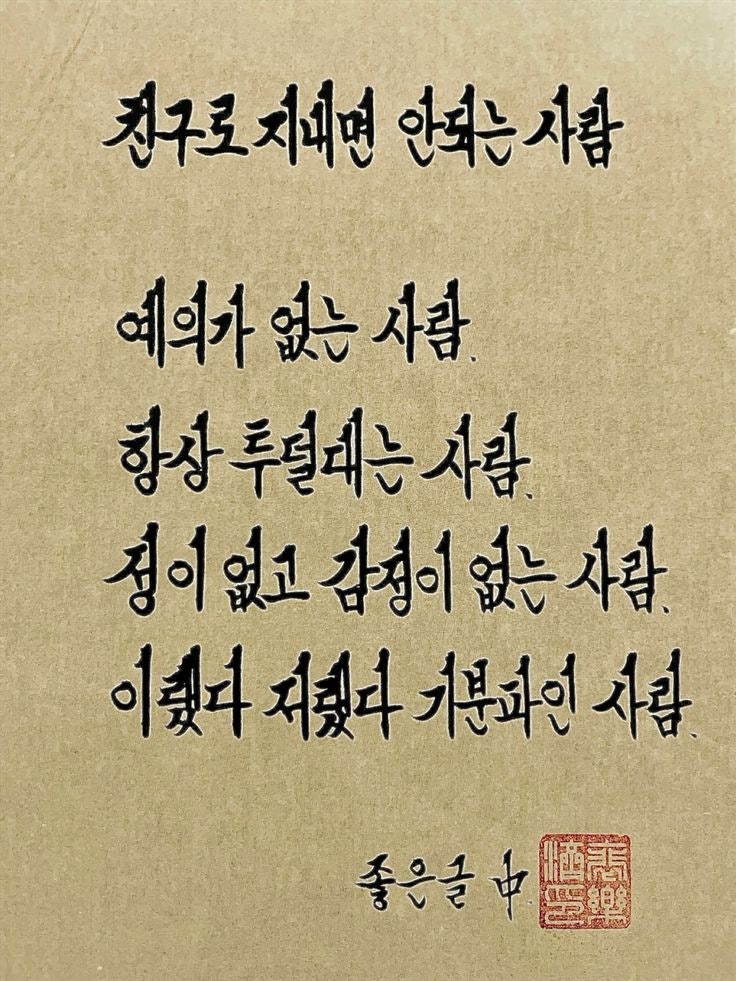 친구로 지내면 안되는 사람
예의가 없는 사람.
항상 투덜대는 사람.
정이 없고 감정이 없는 사람.
이랬다 저랬다 기분파인 사람.
좋은글 中.